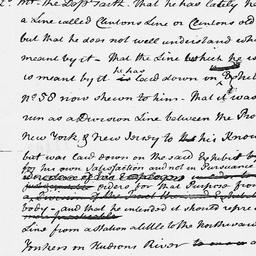 2d. Mr. the Dept saith. That he has lately he
a Line called Clintons Line or Clintons old
but that he does not well understand wh
meant by it – That the Line which he is
is meant by it he has laid down on Exhib
No. 58 now shewn to him. That it was
run as a Division Line between the Pro
New York, & New Jersey to his Know
but was laid down on the said Exhibit by
for his own Satisfaction and not in Pursuance
orders for that Purpose from
body – and that he intended it should repre
Line from a Station a little to the Northward
Yonkers on Hudsons River